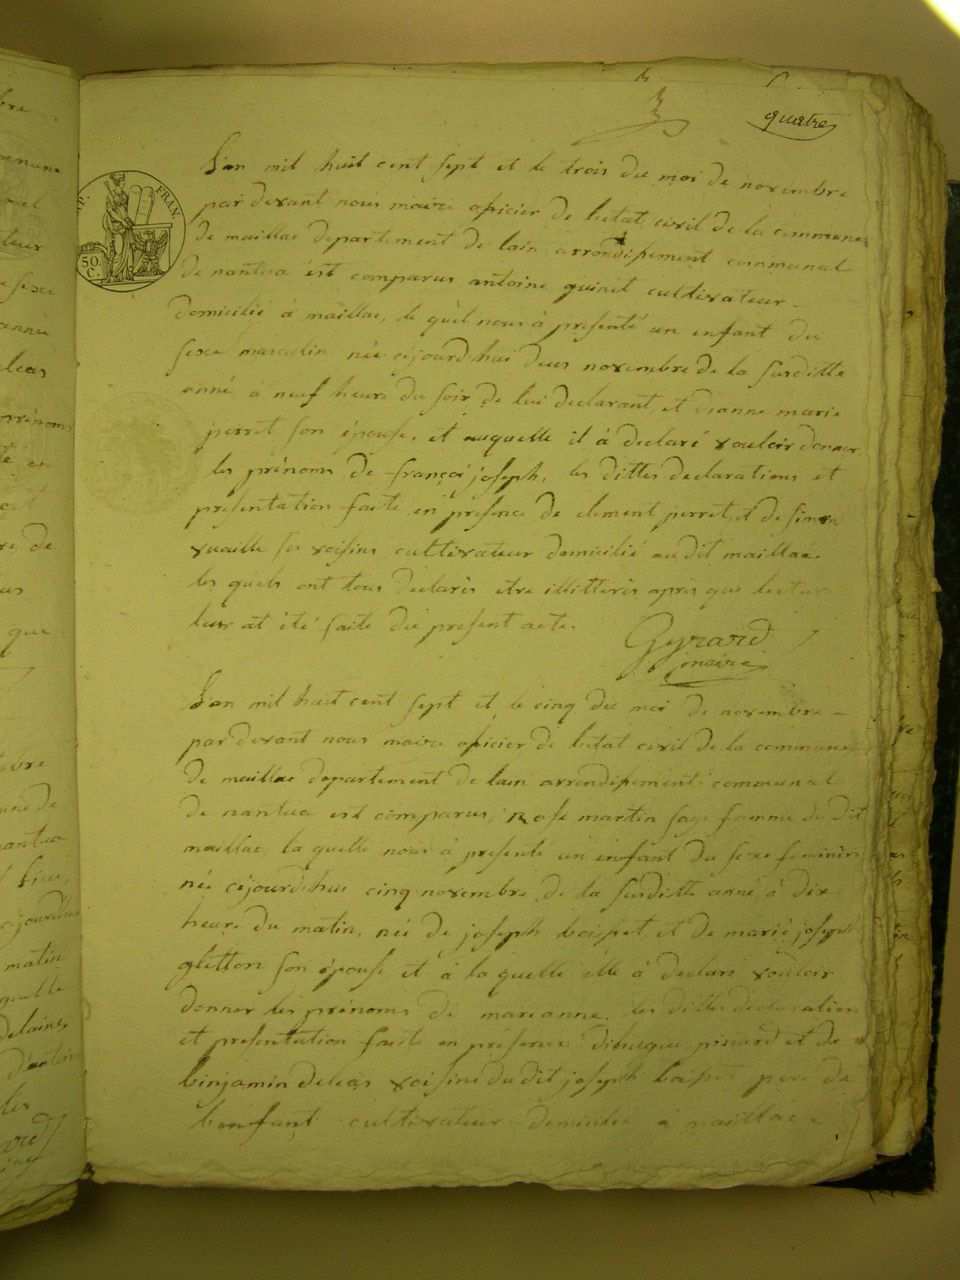 quatre
L'an mil huit cent sept et le trois du moi de novembre
par devant nous maire oficier de letat civil de la commune
de maillac departement de lain arrondisement communal
de nantua est comparus antoine quinet cultivateur
domicilié à maillac, le quel nous à presenté un enfant du
sexe masculin née cejourdhui deux novembre de la susditte
anné à neuf heure du soir de lui declarant et jeanne marie
perret son épouse, et auquelle il à declaré vouloir donner
les prénoms de françoi joseph, les dittes declarations et
presentation faite en presence de clement perret et de simon
vuaille ses voisins cultivateur domicilié au dit maillac
les quels ont tous declarés etre illitterés apres que lecture
leur at été faite du present acte.
Gyrard
maire
L'an mil huit cent sept et le cinq du moi de novembre
par devant nous maire oficier de letat civil de la commune
de maillac departement de lain arrondisement communal
de nantua est comparus, Rose martin sage famme du dit
maillac, la quelle nous à presenté un enfant du sexe feminin
née cejourdhui cinq novembre de la susditte anné à dix
heure du matin, né de joseph boisset et de marie joseph
gletton son épouse et à la quelle elle à declaré vouloir
donner les prénoms de marianne. les dittes declaration
et presentation faite en presence pinard et de
binjamin deleas voisins du dit joseph boisset pere de
lenfant cultivateur domicilié à maillac
FRAN.
50.
C.